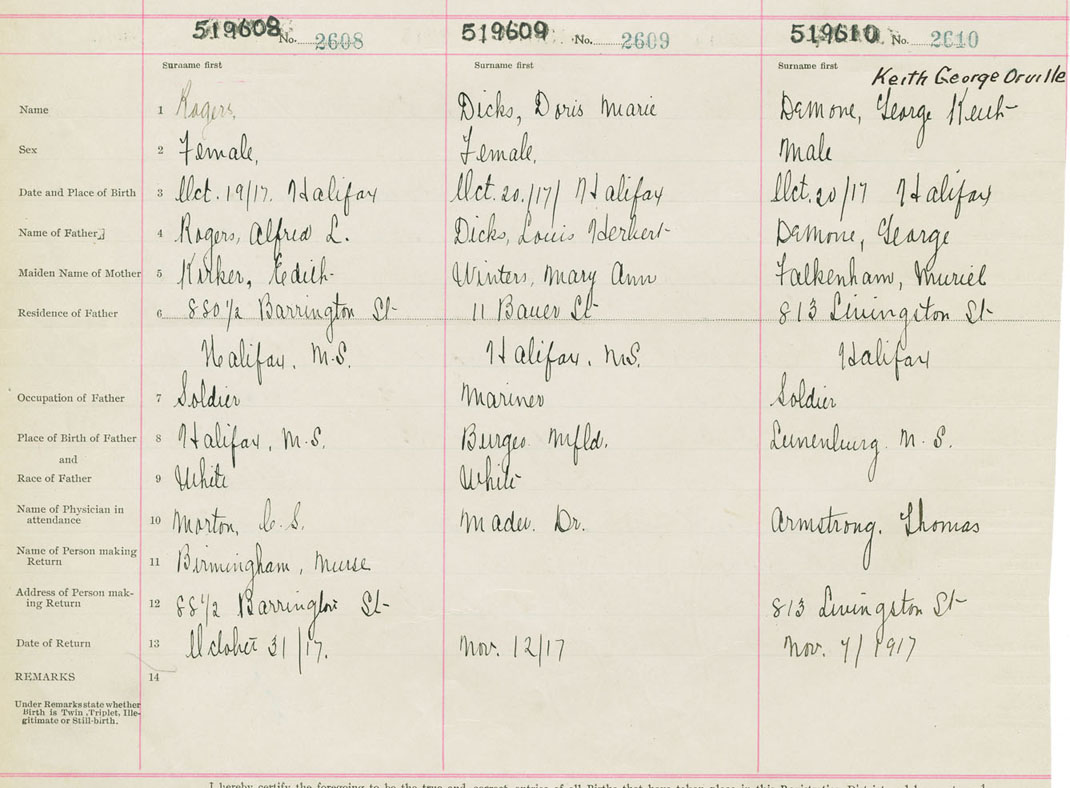 519608 No. 2608 519609 No. 2609 519610 No. 2610
Surname first Surname first Surname first
Keith George Orville
Name 1 Rogers, Dicks, Doris Marie Demone, George Keith
Sex 2 Female, Female, Male
Date and Place of Birth 3 Oct. 19/17. Halifax Oct. 20./17/ Halifax Oct. 20/17 Halifax
Name of Father 4 Rogers, Alfred L. Dicks, Louis Herbert Demone, George
Maiden Name of Mother 5 Kirker, Edith Winters, Mary Ann Falkenham, Muriel
Residence of Father 6 880 1/2 Barrington St 11 Bauer St 813 Livingston St
Halifax, N.S. Halifax, N.S. Halifax
Occupation of Father 7 Soldier Mariner Soldier
Place of Birth of Father 8 Halifax, N.S. Burgeo Nfld. Lunenburg. N.S.
and
Race of Father 9 White White
Name of Physician in
attendance 10 Morton, C.S. Mader. Dr. Armstrong, Thomas
Name of Person making
Return 11 Birmingham, Nurse
Address of Person mak-
ing Return 12 88 1/2 Barrington St 813 Livingston St
Date of Return 13 October 31/17. Nov. 12/17 Nov. 7/1917
REMARKS 14
Under Remarks state whether
Birth is Twin, Triplet, Ille-
gitimate or Still-birth.
I hereby certify the foregoing to be the true and correct entries of all Births that have taken place in this Registration District